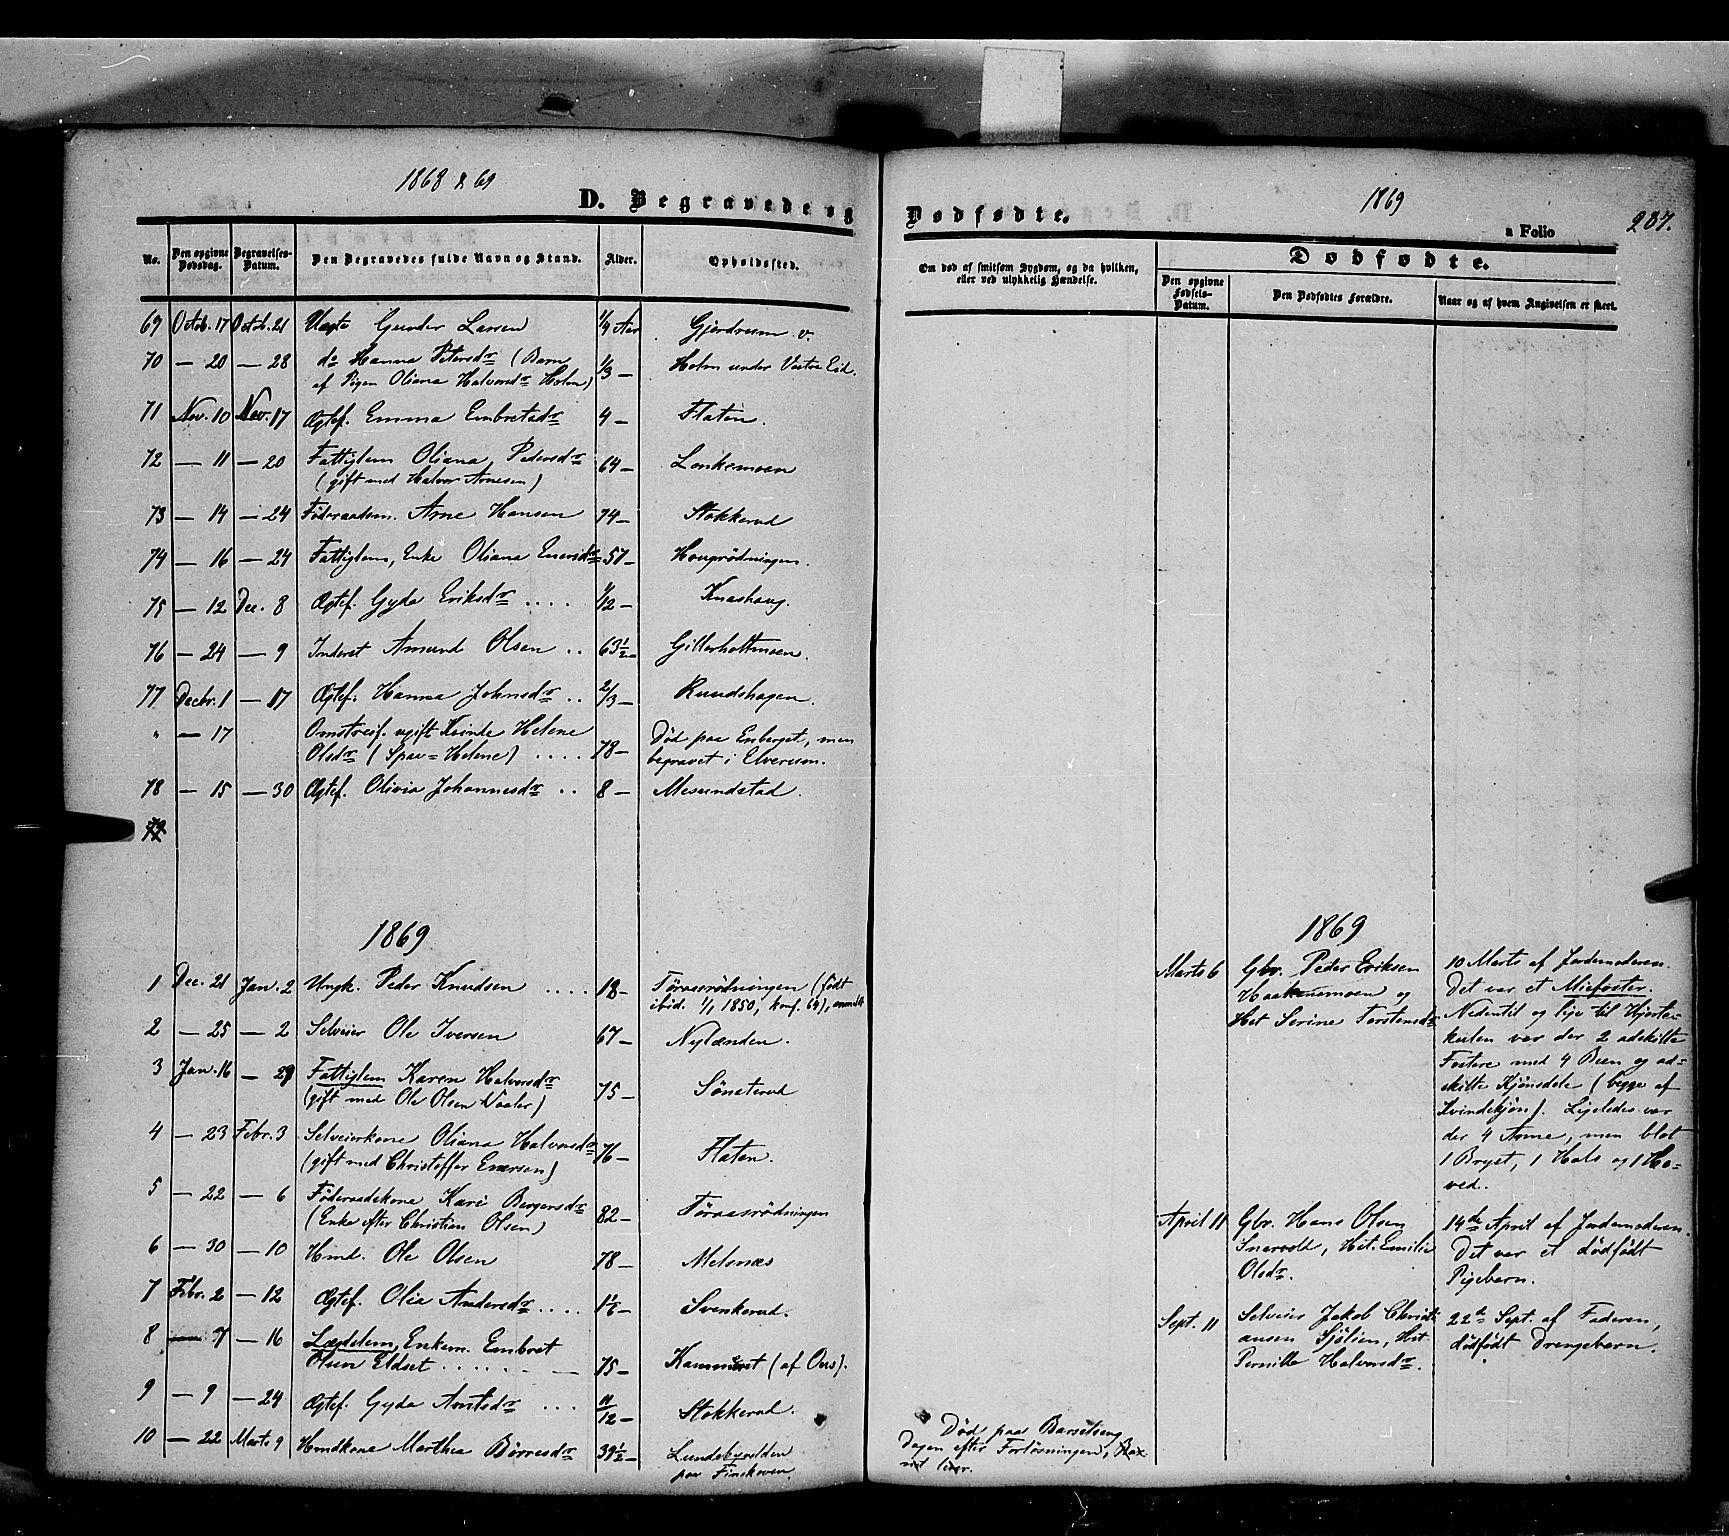 1868 & 69
D. Begravede og
No.
Den opgivne Dødsdag.
Begravelses-Datum.
Den Begravedes fulde Navn og Stand.
Alder.
Opholdssted.
69 Octob. 17 Octob. 21 Uægte Gunder Larsen 1/4 Aar Gjerdrum v.
70 — 20 — 28 do Hanna Petersdr (Barn 1/3 — Holm under Vestre Eid.
af Pigen Oliana Halvorsdr Holm)
71 Nov. 10 Nov. 17 Ægtef. Emma Embretsdr 4 — Flaten.
72 — 11 — 20 Fattiglem Oliana Pedersdr 64 — Lonkemoen
(gift med Halvor Arnesen)
73 — 14 — 24 Føderaadsm. Arne Hansen 74 — Stokkerud
74 — 16 — 24 Fattiglem, Enke Oliana Enersdr 57 — Hougrødningen.
75 — 12 Dec. 8 Ægtef. Gyda Eriksdr .... 1/12 — Knashaug.
76 — 24 — 9 Inderst Amund Olsen .. 63 1/2 — Gillerholtmoen.
77 Decbr. 1 — 17 Ægtef. Hanna Johnsdr .. 2/3 — Ruudshagen.
" — 17 Omstreif. ugift Kvinde Helene
Olsdr (Spaa-Helene) .... 78 — Død paa Enberget, men
begravet i Elverum.
78 — 15 — 30 Ægtef. Olivia Johannesdr .. 8 — Mesundstad.
79
1869
1 Dec. 21 Jan. 2 Ungk. Peder Knudsen .... 18 — Føraasrødningen (født
ibid. 1/1 1850, konf. 64),
2 — 25 — 2 Selveier Ole Iversen 67 — Nylænden.
3 Jan. 16 — 29 Fattiglem Karen Halvorsdr 75 — Sønsterud
(gift med Ole Olsen Vaaler)
4 — 23 Febr. 3 Selveierkone Oliana Halvorsdr 76 — Flaten.
(gift med Christoffer Enersen)
5 — 22 — 6 Føderaadskone Kari Børgersdr 82 — Føraasrødningen
(Enke efter Christian Olsen)
6 — 30 — 10 Hmd. Ole Olsen 78 — Melsnæs
7 Febr. 2 — 12 Ægtef. Olia Andersdr .... 1 1/6 — Svenkerud.
8 — 7 — 16 Lægdslem, Enkem. Embret
Olsen Eldset ..... 75 — Kammeret (af Oos).
9 — 9 — 24 Ægtef. Gyda Arntsdr ... 11/12 — Stokkerud.
10 — 22 Marts 9 Hmdkone Marthea Børresdr 39 1/2 — Lundebyvolden
paa Finskoven.
1869
Dødfødte.
a Folio
207.
Om død af smitsom Sygdom, og da hvilken,
eller ved ulykkelig Hændelse.
Dødfødte.
Den opgivne Fødsels-Datum.
Den Dødfødtes Forældre.
Naar og af hvem Angivelsen er skeet.
1869
Marts 6 Gbr. Peder Eriksen
Haakensmoen og
Hst Serine Torstensdr
10 Marts af Jordemoderen.
Det var et Misfoster.
Nedentil og lige til Hjerte-
kulen var der 2 adskilte
Fostere med 4 Been og ad-
skilte Kjønsdele (begge af
Kvindekjøn). Ligeledes var
der 4 Arme, men blot
1 Bryst, 1 Hals og 1 Ho-
ved.
April 11 Gbr. Hans Olsen
Snarvold, Hst. Emilie
Olsdr.
14de April af Jordemoderen.
Det var et dødfødt
Pigebarn.
Sept. 11 Selveier Jakob Christi-
ansen Sjølien, Hst
Pernille Halvorsdr.
22de Sept. af Faderen,
dødfødt Drengebarn.
Død paa Barselseng
Dagen efter Forløsningen,